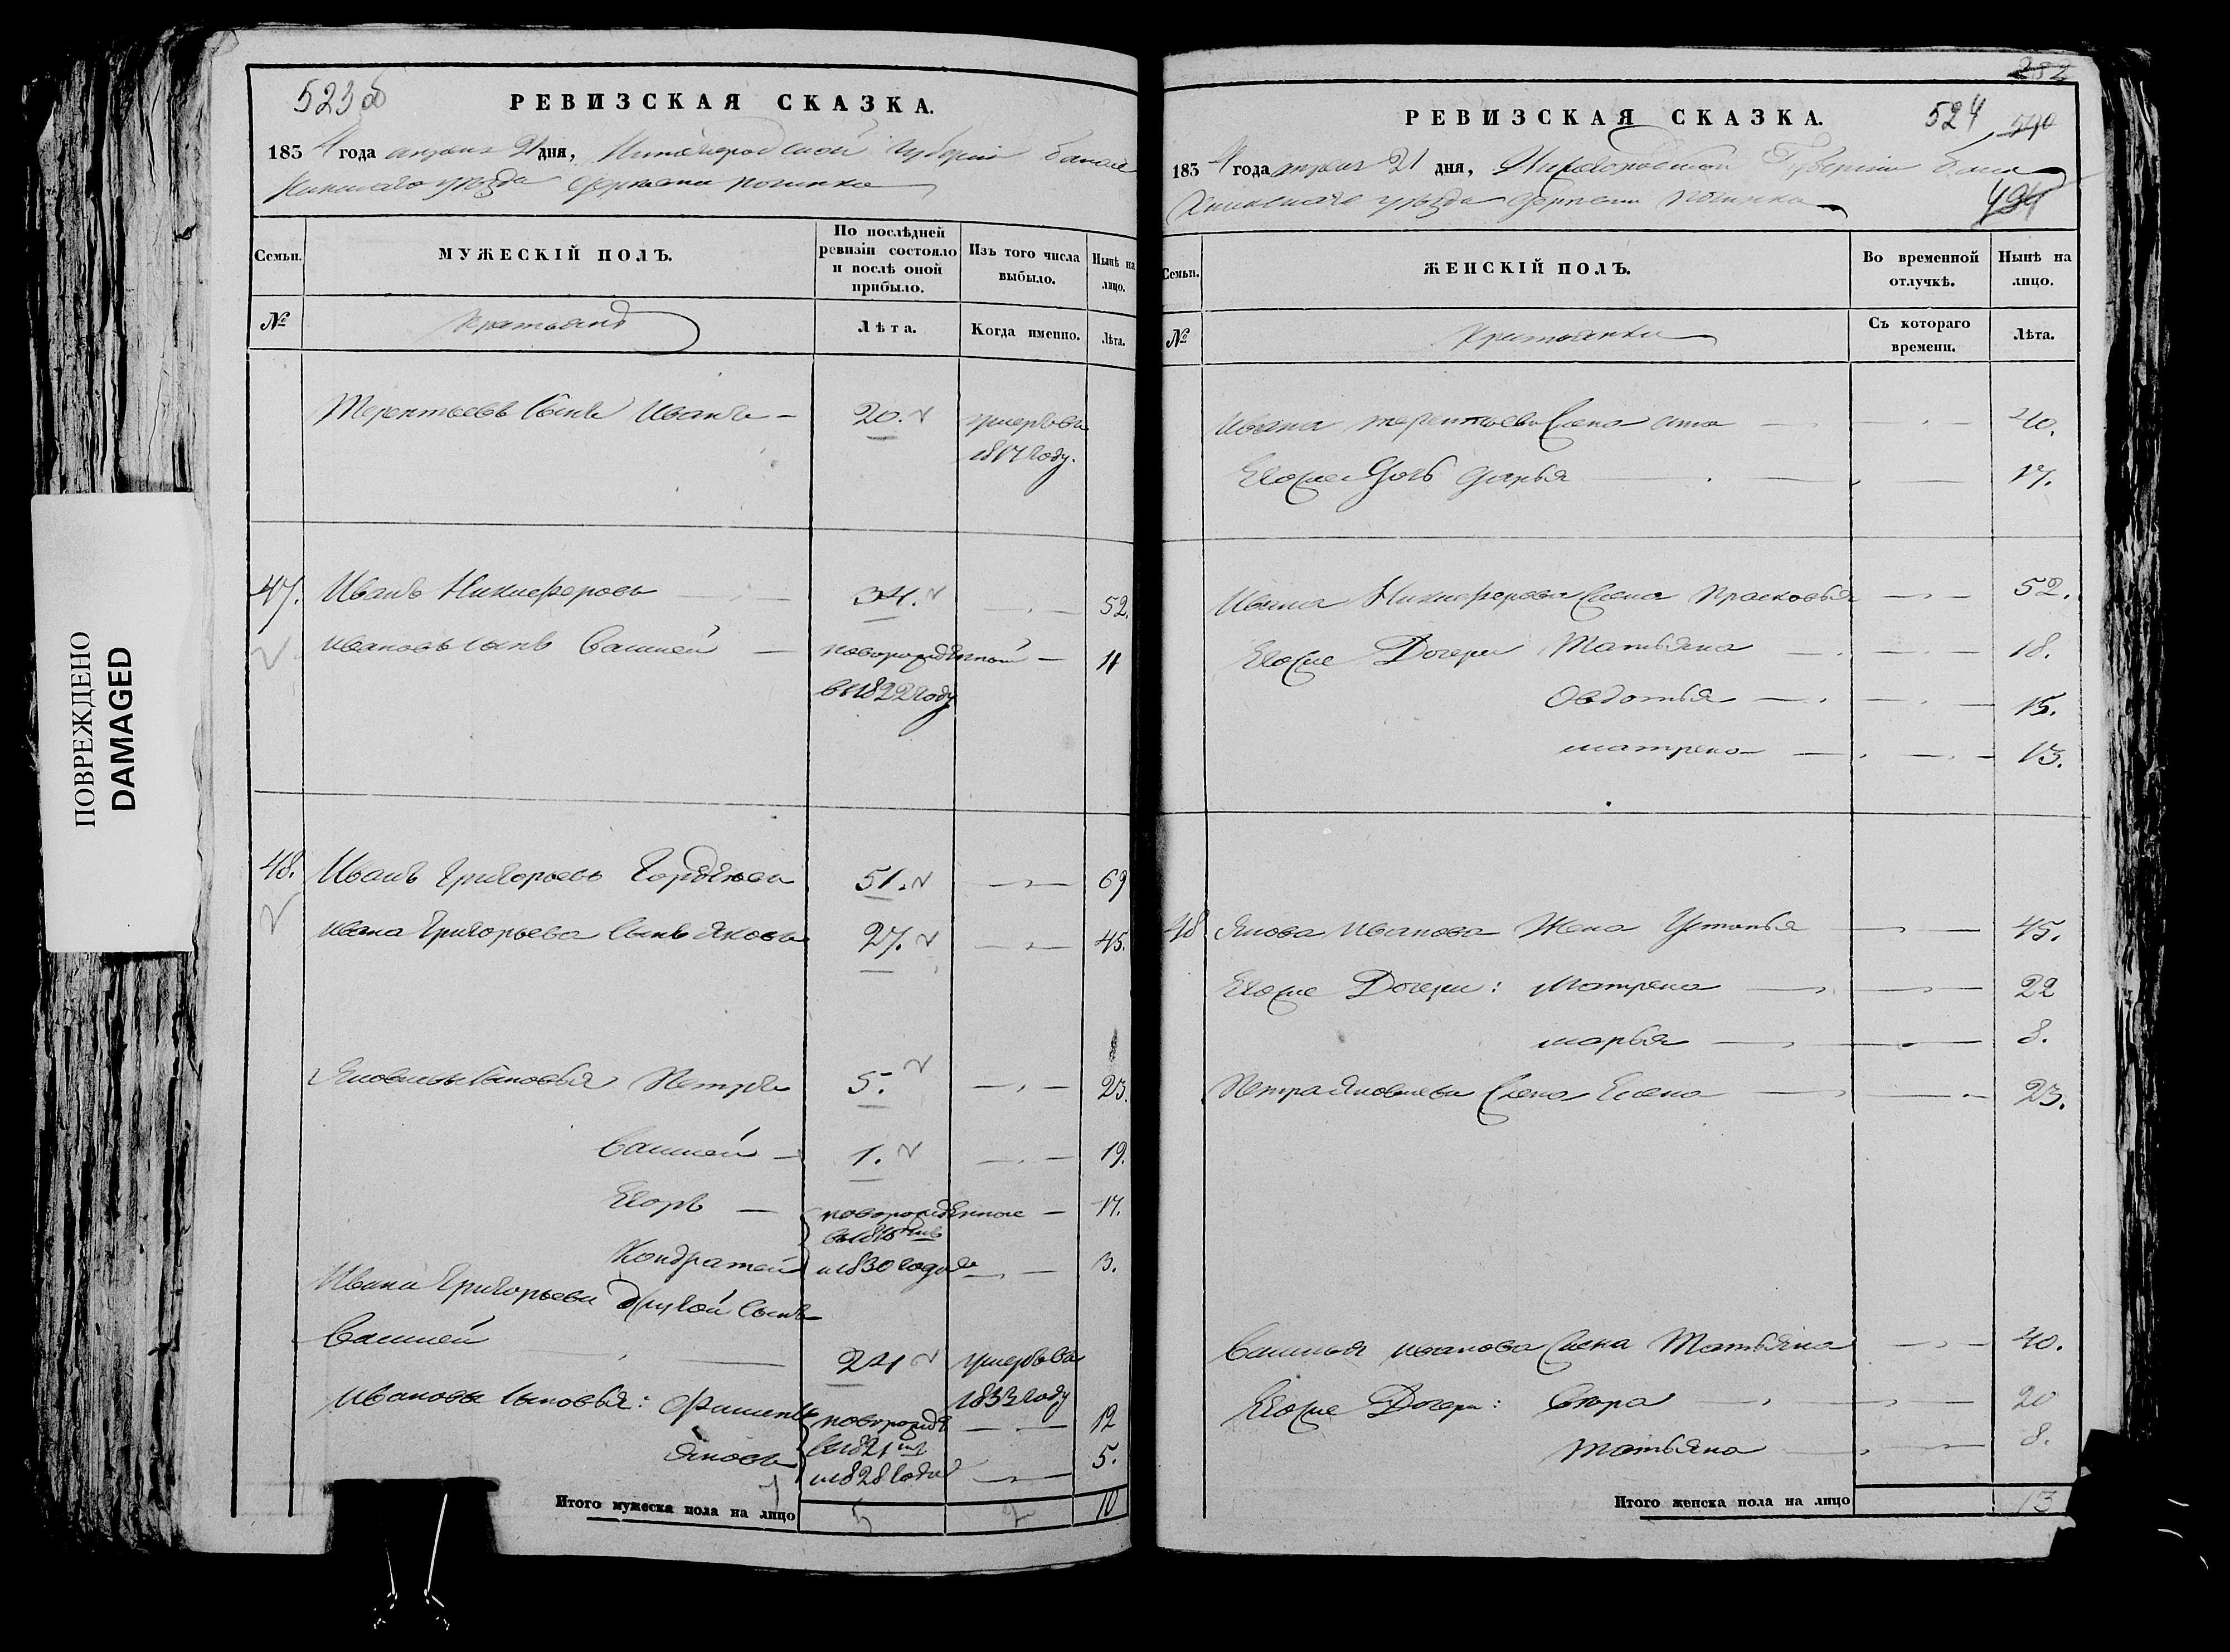 ПОВРЕЖДЕНО
DAMAGED
523 об
РЕВИЗСКАЯ СКАЗКА.
1834 года апреля 21 дня, Нижегородской Губернии Бала
хнинскаго уезда деревни Починка
Семьи.
МУЖЕСКІЙ ПОЛЪ.
По послѣдней ревизіи состояло и послѣ оной прибыло.
Изъ того числа выбыло.
Нынѣ на лицо.
№
Крестьянъ
Лѣта.
Когда именно.
Лѣта.
Терентьевъ сынъ Иванъ 20.
умерълъ 1817 году.
47. Иванъ Никифоровъ 34. 52.
Ивановъ сынъ Василей новорожденный 11
въ 1822 году
48. Иванъ Григорьевъ 51. 69
Ивана Григорьева сынъ Яковъ 27. 45.
Яковлевы сыновья Петръ 5. 23.
Василей 1. 19.
Егоръ новорожденные 17.
Кондратей и 1830 годах 3.
Ивана Григорьева другой сынъ
Василей 24 умеръ въ
1833 году
сыновья: новорожд 12
въ 1821 мъ
Яковъ и 1828 годах 5.
Итого мужеска пола на лицо 5 2 10
282
РЕВИЗСКАЯ СКАЗКА.
524 590
1834 года апреля 21 дня, Нижегородской Губерніи Бала
хнинскаго уезда деревни Починка
494
Семьи.
ЖЕНСКІЙ ПОЛЪ.
Во временной отлучкѣ.
Нынѣ на лицо.
№
Крестьянки
Съ котораго времени.
Лѣта.
Ивана Терентьева жена Анна 40.
Его же дочь Дарья 17.
Ивана Никифорова жена Прасковья 52.
Его же Дочери Татьяна 18.
Овдотья 15.
Матрена 13.
48 Якова Иванова Жена Устинья 45.
Его же Дочери: Матрена 22
Марья 8.
Петра Яковлева жена Елена 23.
Василья Иванова жена Татьяна 40.
Его же Дочери: 20
Татьяна 8.
Итого женска пола на лицо 13